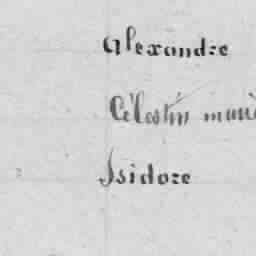 Alexandre
Célestin marie
Isidore